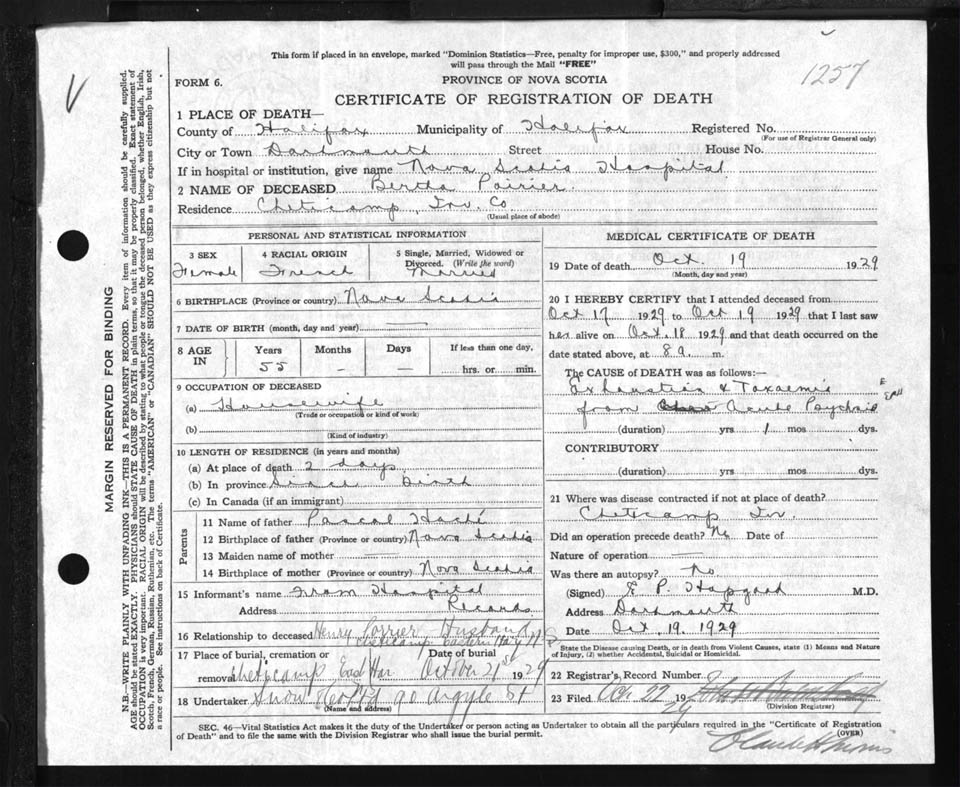 This form if placed in an envelope, marked "Dominion Statistics—Free, penalty for improper use, $300," and properly addressed
will pass through the Mail "FREE"
1257
FORM 6.
PROVINCE OF NOVA SCOTIA
CERTIFICATE OF REGISTRATION OF DEATH
1 PLACE OF DEATH—
County of Halifax Municipality of Halifax Registered No.
(For use of Registrar General only)
City or Town Dartmouth Street House No.
If in hospital or institution, give name Nova Scotia Hospital
2 NAME OF DECEASED Bertha Poirier
Residence Cheticamp, Inv. Co.
(Usual place of abode)
PERSONAL AND STATISTICAL INFORMATION
3 SEX 4 RACIAL ORIGIN 5 Single, Married, Widowed or
Divorced. (Write the word)
Female French Married
6 BIRTHPLACE (Province or country) Nova Scotia
7 DATE OF BIRTH (month, day and year) —
8 AGE IN Years Months Days If less than one day,
55 - - hrs. or min.
9 OCCUPATION OF DECEASED
(a) Housewife
(Trade or occupation or kind of work)
(b)
(Kind of industry)
10 LENGTH OF RESIDENCE (in years and months)
(a) At place of death 2 days
(b) In province Since Birth
(c) In Canada (if an immigrant)
Parents
11 Name of father Pascal Haché
12 Birthplace of father (Province or country) Nova Scotia
13 Maiden name of mother —
14 Birthplace of mother (Province or country) Nova Scotia
15 Informant's name From Hospital
Address Records
16 Relationship to deceased Henry Husband
17 Place of burial, cremation or Date of burial
removal Cheticamp East Har October 21st 1929
18 Undertaker Snow 90 Argyle St
(Name and address)
MEDICAL CERTIFICATE OF DEATH
19 Date of death Oct. 19 1929
(Month, day and year)
20 I HEREBY CERTIFY that I attended deceased from
Oct 17 1929 to Oct 19 1929 that I last saw
her alive on Oct. 18 1929 and that death occurred on
date stated above, at 8 a. m.
The CAUSE OF DEATH was as follows:—
Exhaustion & Toxaemia
from Acute Psychosis
(duration) yrs 1 mos dys.
CONTRIBUTORY
(duration) yrs. mos. dys.
21 Where was disease contracted if not at place of death?
Cheticamp Inv.
Did an operation precede death? No Date of
Nature of operation —
Was there an autopsy? No
(Signed) E. P. Hapgood M.D.
Address Dartmouth
Date Oct. 19. 1929
State the Disease causing Death, or in death from Violent Causes, state (1) Means and Nature
of Injury, (2) whether Accidental, Suicidal or Homicidal.
22 Registrar's Record Number
23 Filed Oct 22 1929
(Division Registrar)
SEC. 46—Vital Statistics Act makes it the duty of the Undertaker or person acting as Undertaker to obtain all the particulars required in the "Certificate of Registration
of Death" and to file the same with the Division Registrar who shall issue the burial permit.
(OVER)
MARGIN RESERVED FOR BINDING
N.B.—WRITE PLAINLY WITH UNFADING INK—THIS IS A PERMANENT RECORD. Every item of information should be carefully supplied.
AGE should be stated EXACTLY. PHYSICIANS should STATE CAUSE OF DEATH in plain terms, so that it may be properly classified. Exact statement of
OCCUPATION is very important. RACIAL ORIGIN will be described by stating to what people or tongue the deceased person belonged, whether English, Irish,
Scotch, French, German, Russian, Ruthenian, etc. The terms "AMERICAN" or "CANADIAN" SHOULD NOT BE USED as they express citizenship but not
a race or people. See instructions on back of Certificate.